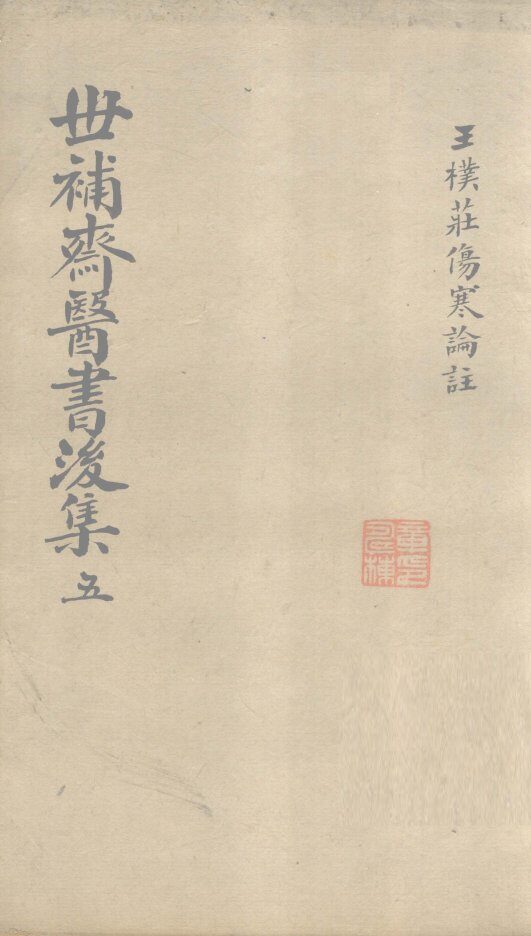 王樸莊傷寒論註
世補齋醫書後集 五